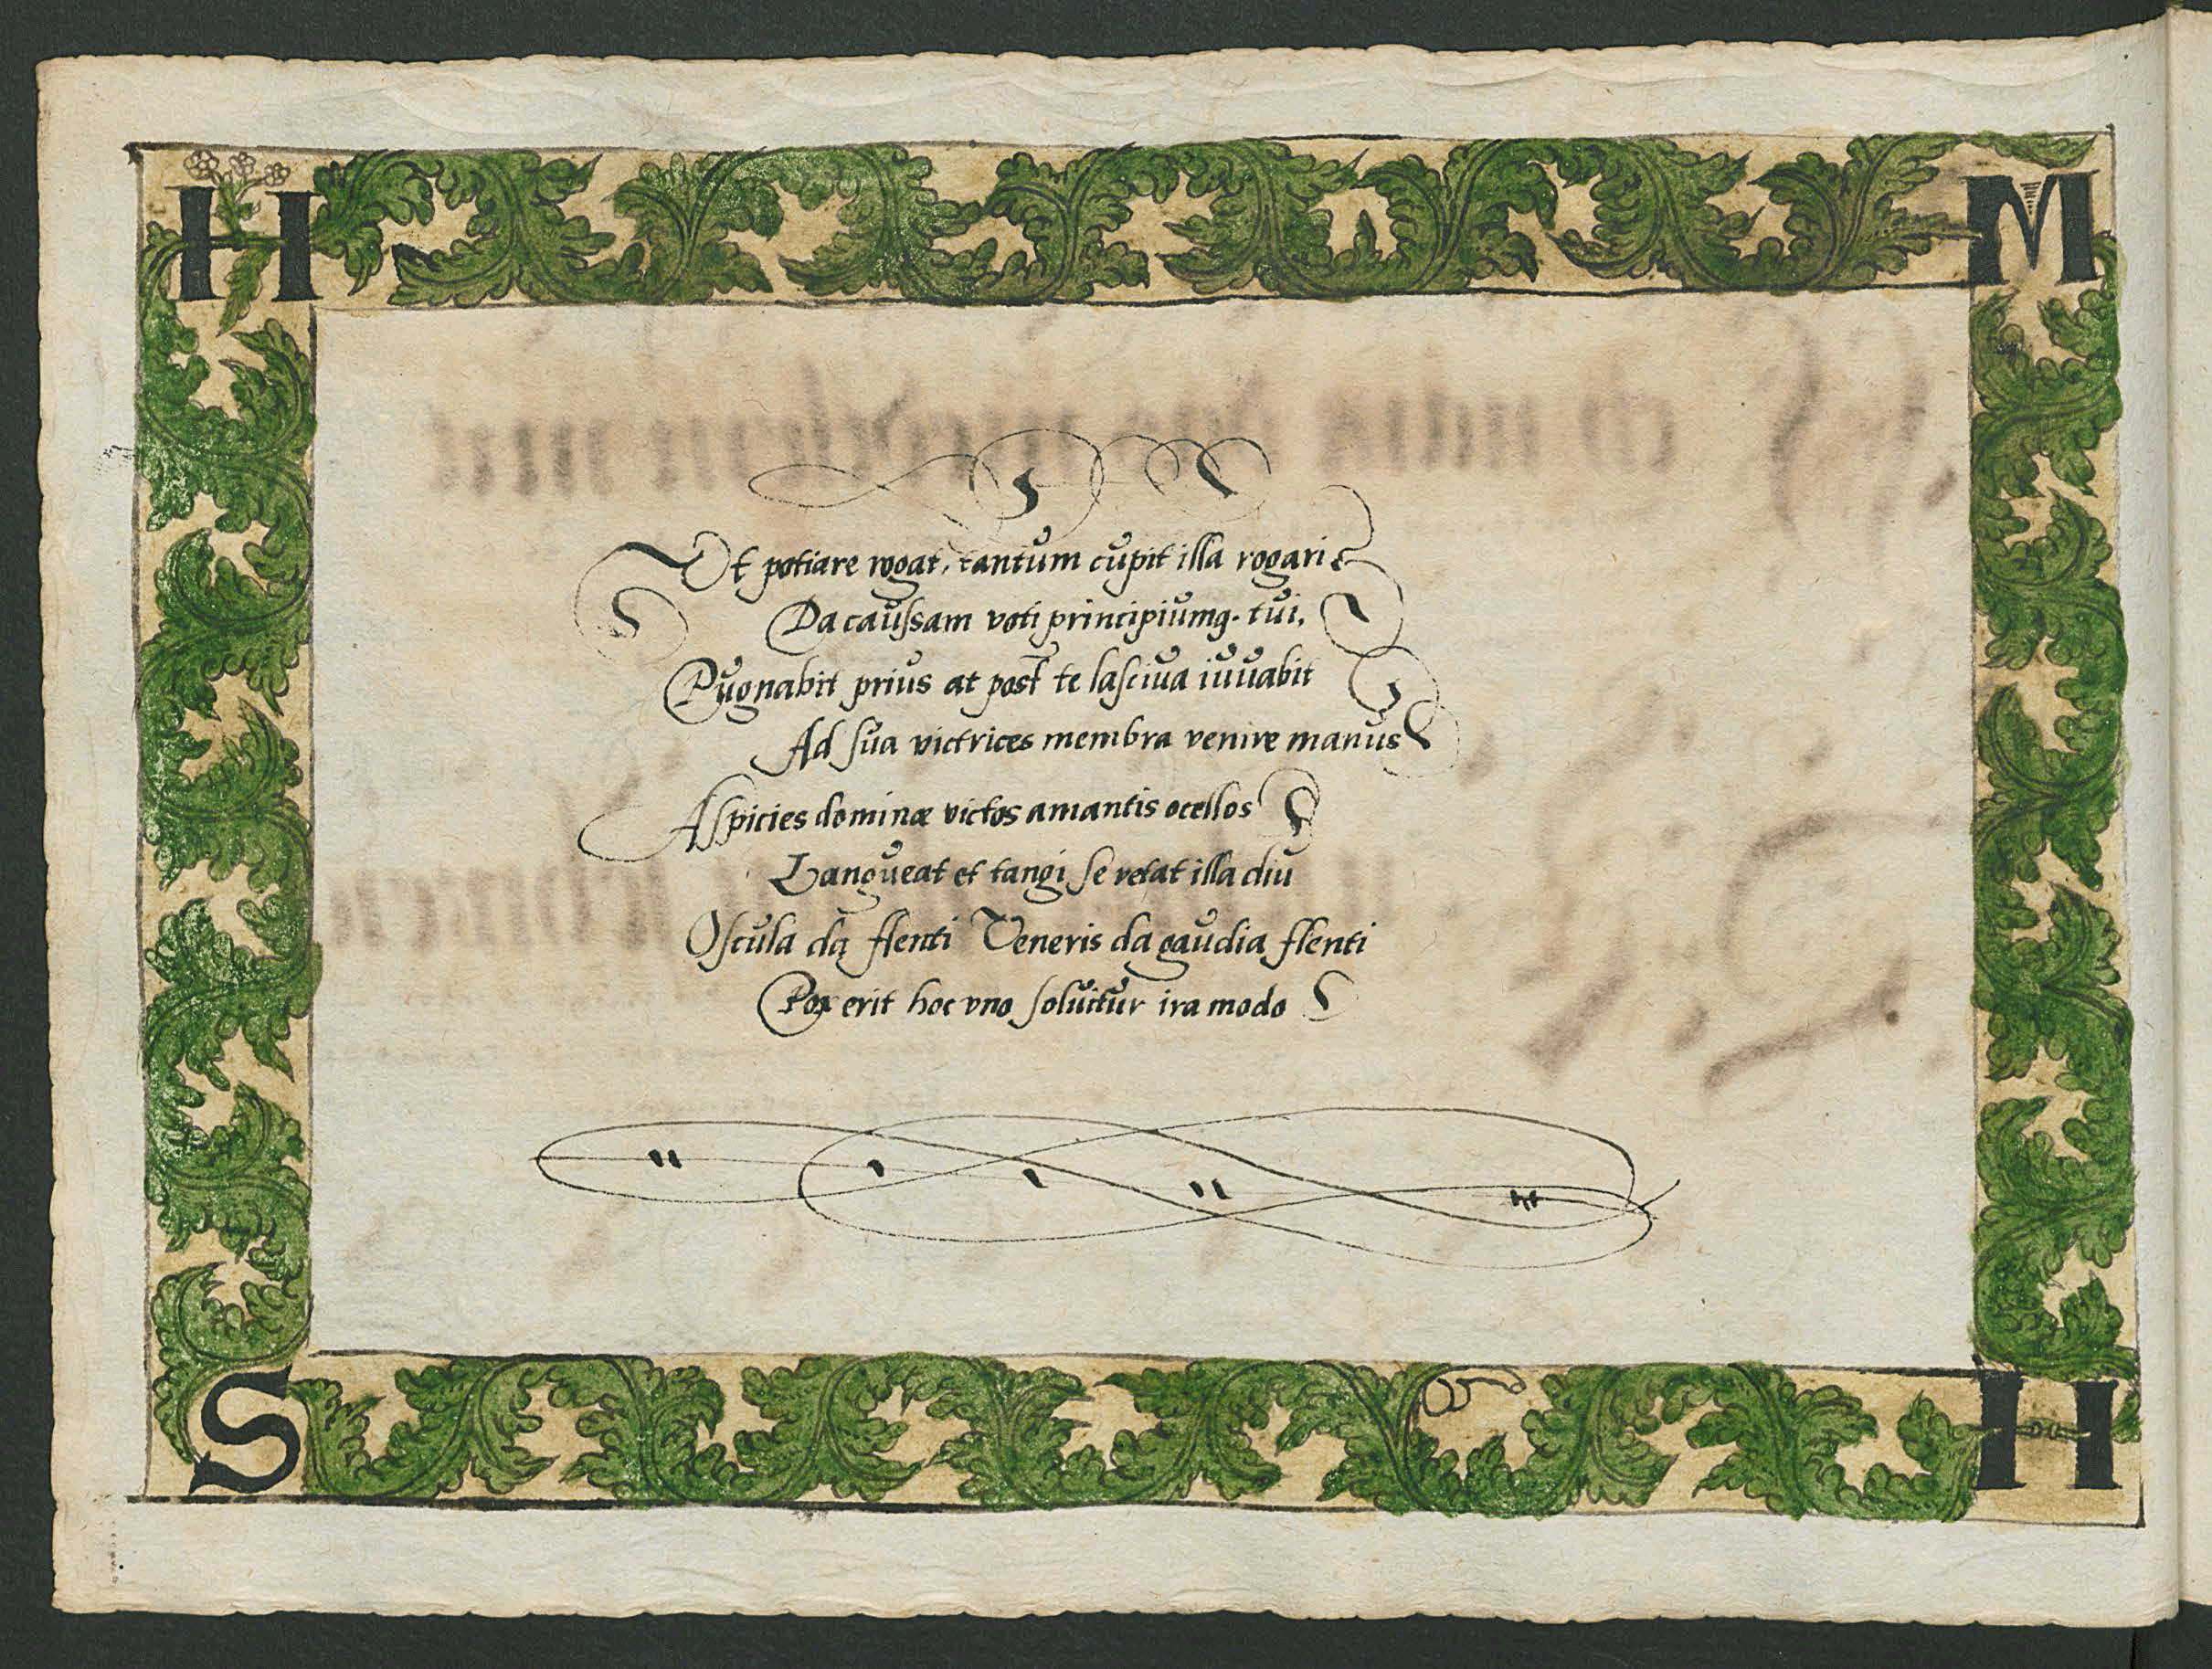 H M
Ut potiare rogat, tantum cupit illa rogari
Da caussam voti principiumq. tui,
Pugnabit prius at post te lasciva iuvabit
Ad sua victrices membra venire manus
Aspicies dominæ victos amantis ocellos
Langueat et tangi se vetat illa diu
Oscula da flenti Veneris da gaudia flenti
Pax erit hoc vno soluitur ira modo
S H